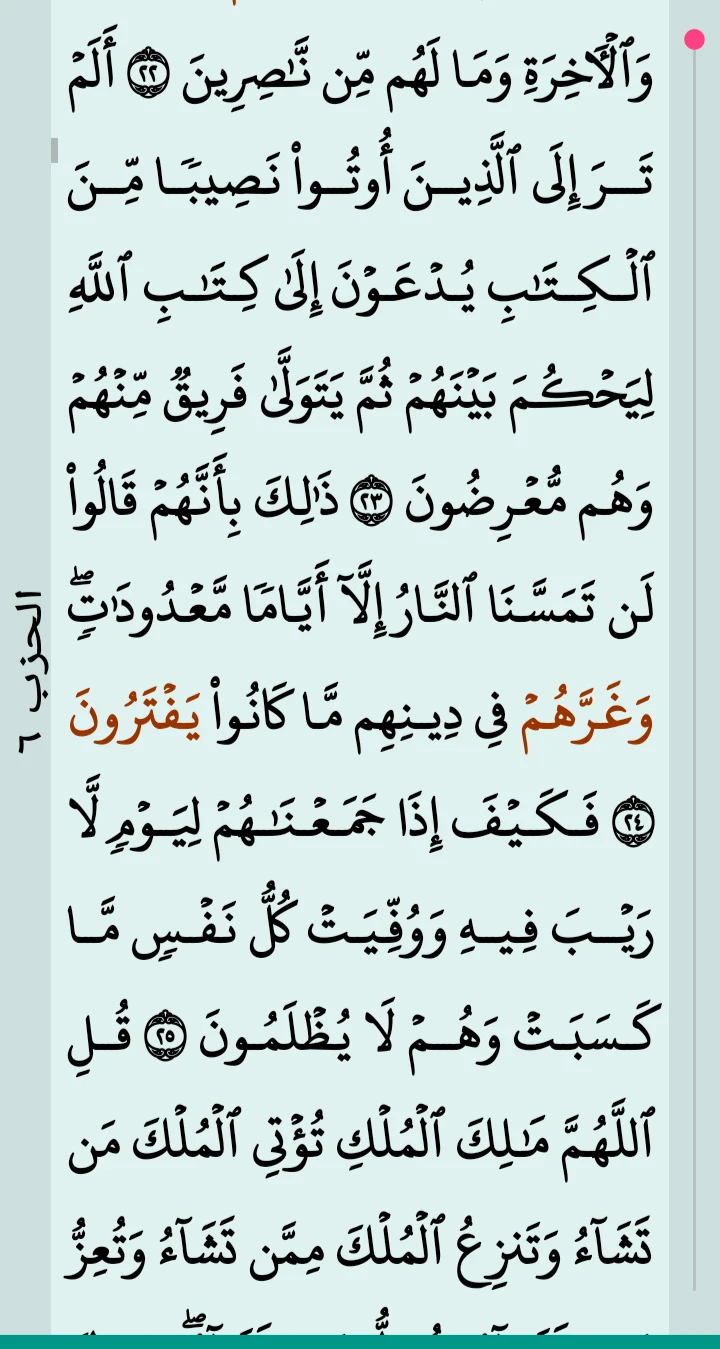 وَٱلْأٓخِرَةِ وَمَا لَهُم مِّن نَّٰصِرِينَ ٢٢ أَلَمْ
تَرَ إِلَى ٱلَّذِينَ أُوتُوا۟ نَصِيبًا مِّنَ
ٱلْكِتَٰبِ يُدْعَوْنَ إِلَىٰ كِتَٰبِ ٱللَّهِ
لِيَحْكُمَ بَيْنَهُمْ ثُمَّ يَتَوَلَّىٰ فَرِيقٌ مِّنْهُمْ
وَهُم مُّعْرِضُونَ ٢٣ ذَٰلِكَ بِأَنَّهُمْ قَالُوا۟
لَن تَمَسَّنَا ٱلنَّارُ إِلَّآ أَيَّامًا مَّعْدُودَٰتٍۖ
وَغَرَّهُمْ فِى دِينِهِم مَّا كَانُوا۟ يَفْتَرُونَ
٢٤ فَكَيْفَ إِذَا جَمَعْنَٰهُمْ لِيَوْمٍ لَّا
رَيْبَ فِيهِ وَوُفِّيَتْ كُلُّ نَفْسٍ مَّا
كَسَبَتْ وَهُمْ لَا يُظْلَمُونَ ٢٥ قُلِ
ٱللَّهُمَّ مَٰلِكَ ٱلْمُلْكِ تُؤْتِى ٱلْمُلْكَ مَن
تَشَآءُ وَتَنزِعُ ٱلْمُلْكَ مِمَّن تَشَآءُ وَتُعِزُّ
الحزب ٦